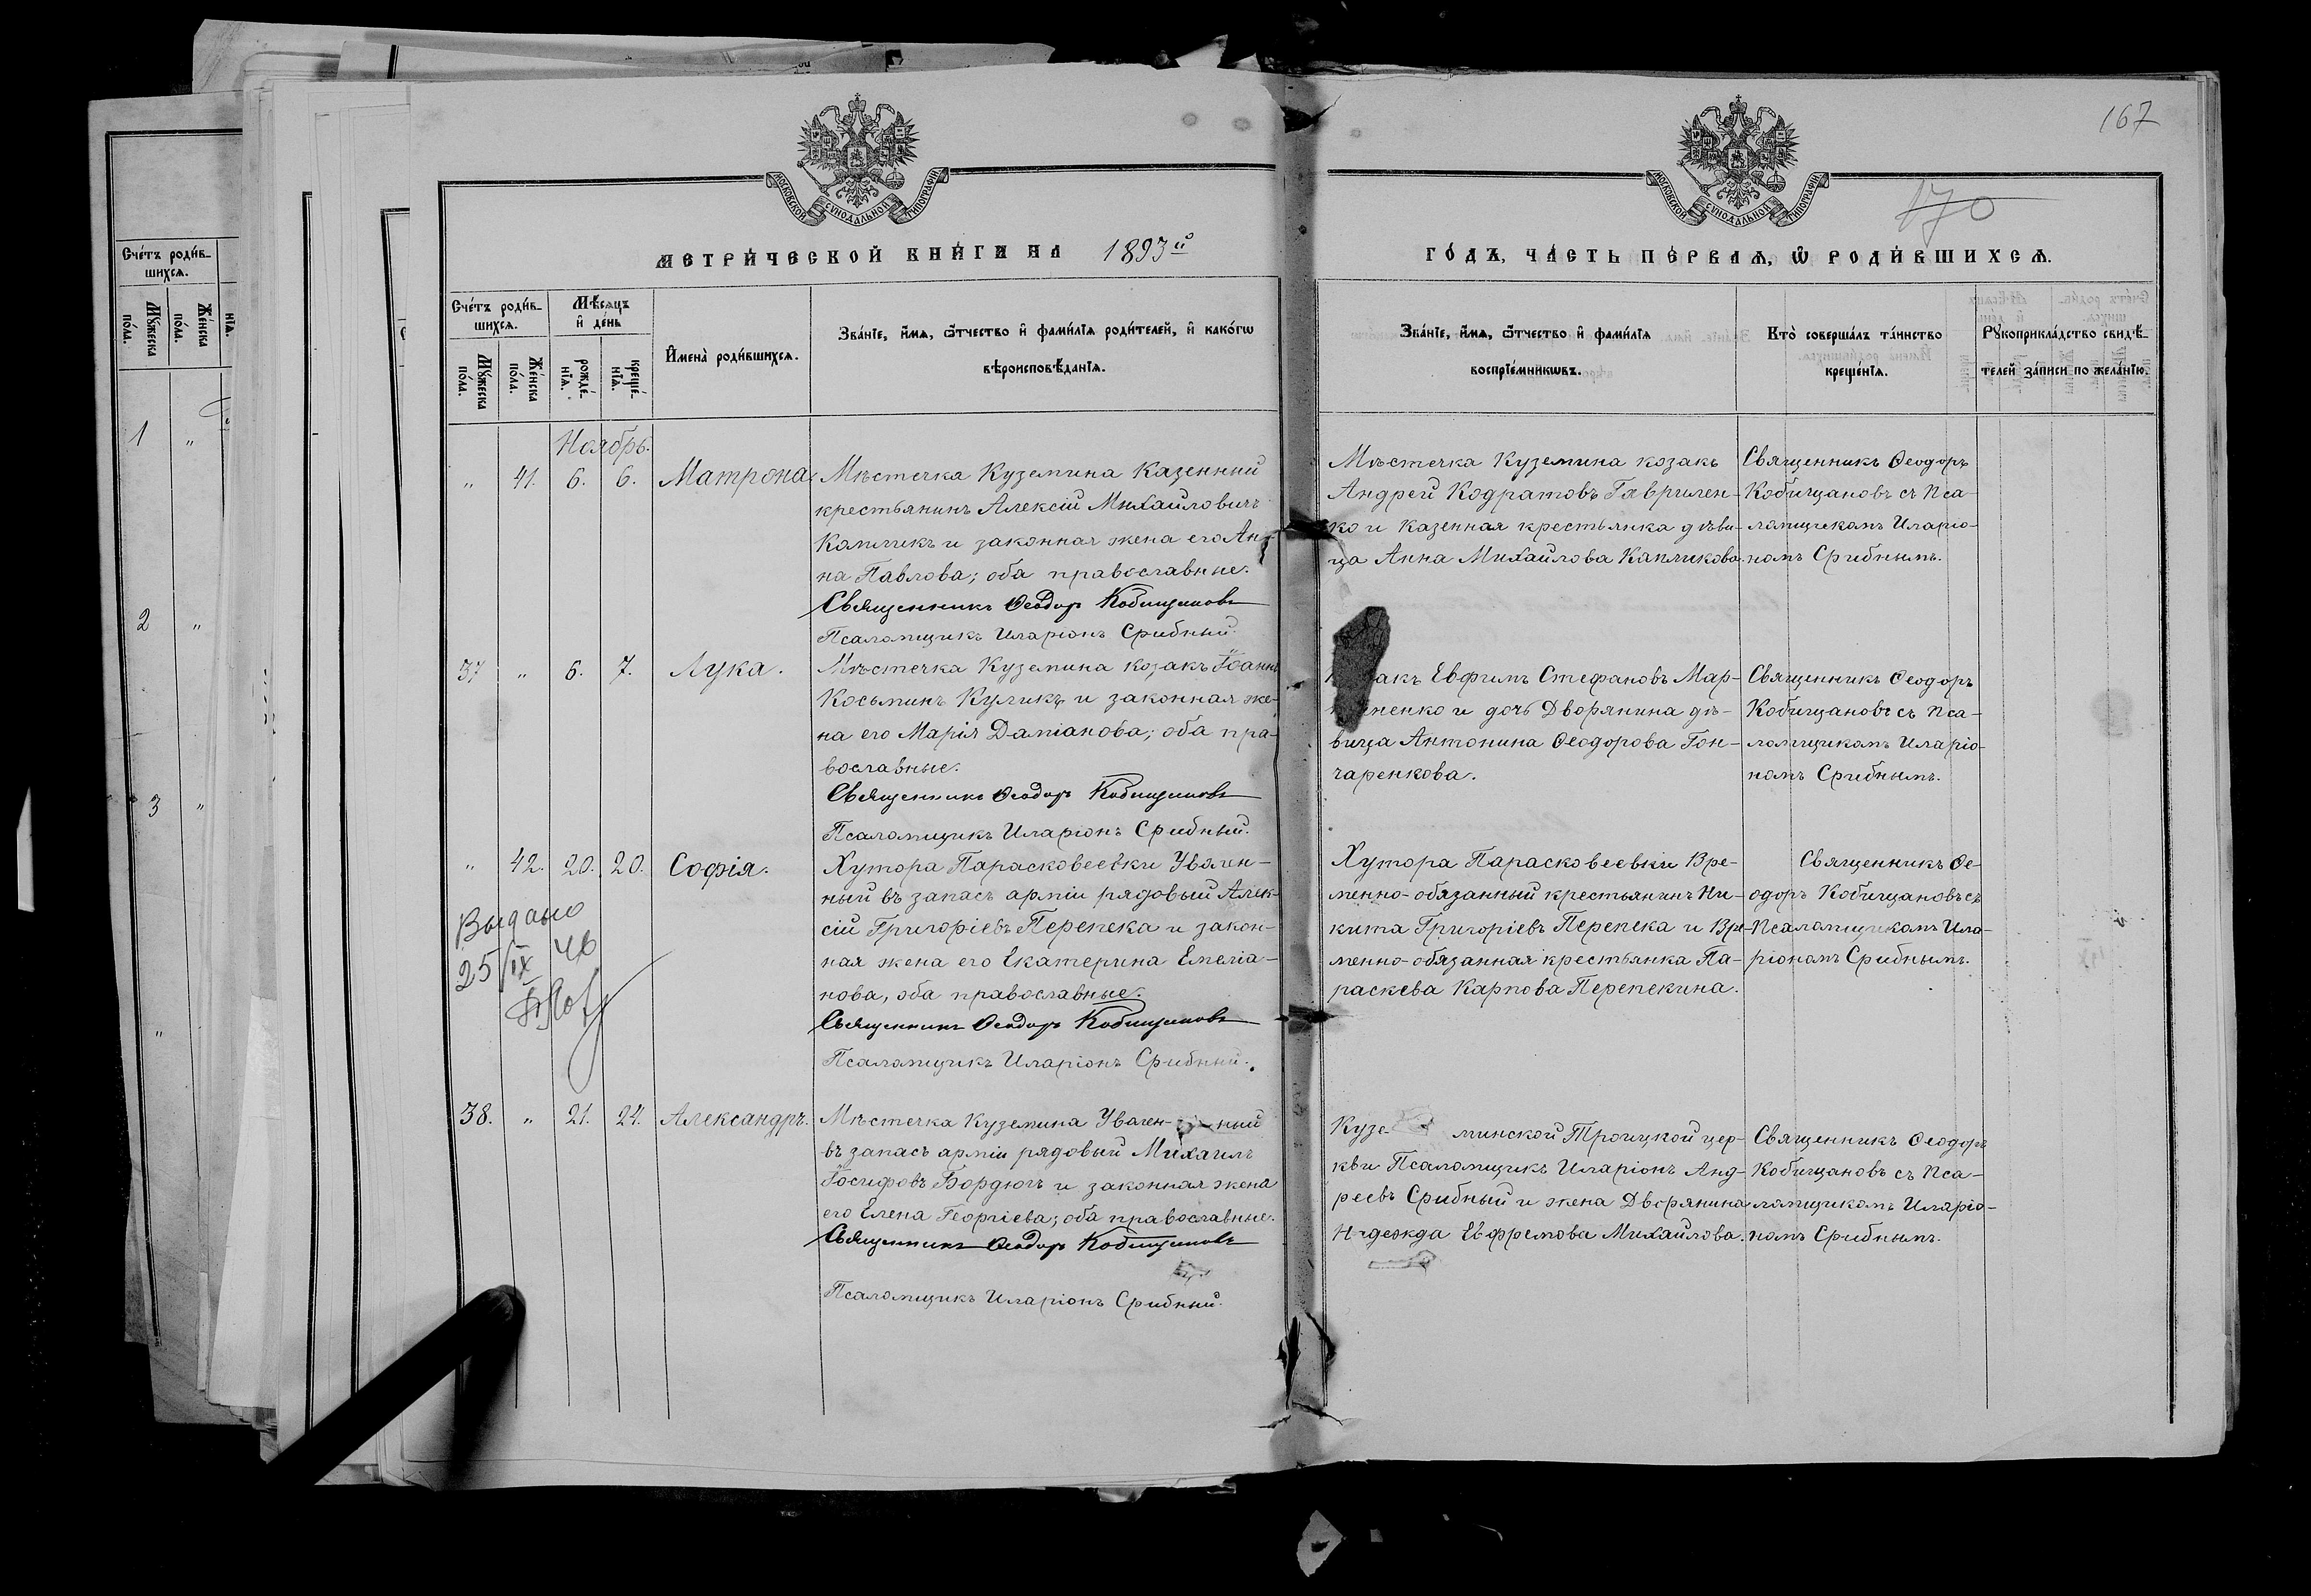 167
170
МОСКОВСКОЙ СѴНОДАЛЬНОЙ ТИПОГРАФІИ
МОСКОВСКОЙ СѴНОДАЛЬНОЙ ТИПОГРАФІИ
МЕТРИ́ЧЕСКОЙ КНИ́ГИ НА 1893й
ГО́ДЪ, ЧА́СТЬ ПЕ́РВАѦ, Ѽ РОДИ́ВШИХСѦ.
Сче́тъ роди́в-
шихсѧ.
Мꙋ́жеска
по́ла.
Же́нска
по́ла.
Мѣ́сѧцъ
и҆ де́нь
рожде́-
нїѧ.
креще́-
нїѧ.
И҆мена̀ роди́вшихсѧ.
Зва́нїе, и҆́мѧ, ѻ҆́тчество и҆ фами́лїѧ роди́телей, и҆ како́гѡ
вѣроисповѣ́данїѧ.
Зва́нїе, и҆́мѧ, ѻ҆́тчество и҆ фами́лїѧ
воспрїе́мникѡвъ.
Кто̀ соверша́лъ та́инство
креще́нїѧ.
Рꙋкоприкла́дство свидѣ́-
телей за́писи по жела́нїю.
Сче́тъ роди́в-
шихсѧ.
Мꙋ́жеска
по́ла.
Же́нска
по́ла.
нїѧ.
1 "
2 "
3 "
"
Ноябрь.
" 41. 6. 6. Матрона.
Мѣстечка Куземина Казенный
крестьянинъ Алексій Михайловичъ
Капликъ и законная жена его Ан-
на Павлова; оба православные.
Священникъ Ѳеодоръ Кобищановъ
Псаломщикъ Иларіонъ Срибный.
Мѣстечка Куземина козакъ
Андрей Кодратовъ Гаврилен-
ко и Казенная крестьянка дѣви-
ца Анна Михайлова Капликова.
Священникъ Ѳеодоръ
Кобищановъ съ Пса-
ломщикомъ Иларіо-
номъ Срибнымъ.
37 " 6. 7. Лука.
Мѣстечка Куземина козакъ Іоаннъ
Косьминъ Куликъ и законная же-
на его Марія Даміанова; оба пра-
вославные.
Священникъ Ѳеодоръ Кобищановъ
Псаломщикъ Иларіонъ Срибный.
акъ Евфимъ Стефановъ Мар-
ненко и дочь Дворянина дѣ-
вица Антонина Ѳеодорова Гон-
чаренкова.
Священникъ Ѳеодоръ
Кобищановъ съ Пса-
ломщикомъ Иларіо-
номъ Срибнымъ.
" 42. 20. 20. Софія.
Хутора Парасковеевки Уволен-
ный въ запасъ арміи рядовый Алек-
сій Григоріевъ Перепека и закон-
ная жена его Екатерина Емеліа-
нова, оба православные.
Священникъ Ѳеодоръ Кобищановъ
Псаломщикъ Иларіонъ Срибный.
Хутора Парасковеевки Вре-
менно-обязанный крестьянинъ Ни-
кита Григоріевъ Перепека и Вре-
менно-обязанная крестьянка Па-
раскева Карпова Перепекина.
Священникъ Ѳе-
одоръ Кобищановъ съ
Псаломщикомъ Ила-
ріономъ Срибнымъ.
Выдано
25/IX 46
38. " 21. 24. Александръ.
Мѣстечка Куземина Уволен- ный
въ запасъ арміи рядовый Михаилъ
Іосифовъ Бордюгъ и законная жена
его Елена Георгіева; оба православные.
Священникъ Ѳеодоръ Кобищановъ
Псаломщикъ Иларіонъ Срибный.
Кузе- минской Троицкой цер-
кви Псаломщикъ Иларіонъ Анд-
реевъ Срибный и жена Дворянина
Надежда Евфремова Михайлова.
Священникъ Ѳеодоръ
Кобищановъ съ Пса-
ломщикомъ Иларіо-
номъ Срибнымъ.